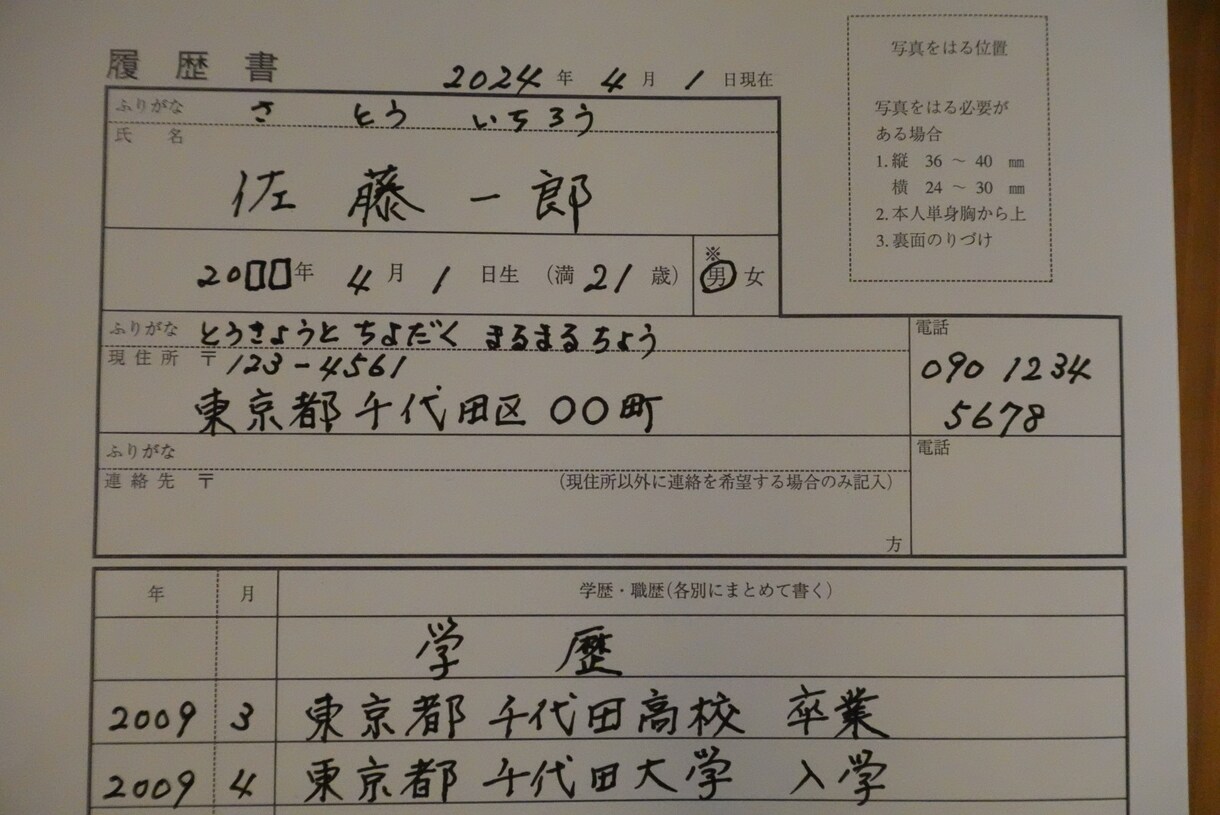 履歴書
2024年 4月 1日現在
写真をはる位置
写真をはる必要が
ある場合
1. 縦 36 ～ 40 ㎜
横 24 ～ 30 ㎜
2. 本人単身胸から上
3. 裏面のりづけ
ふりがな さ とう いちろう
氏 名
佐藤 一郎
20□□年 4月 1日生 (満 21歳) ※ 男 女
ふりがな とうきょうと ちよだく まるまるちょう
電話
現住所 〒 123-4561
090 1234
東京都千代田区 〇〇町
5678
ふりがな
電話
連絡先 〒 (現住所以外に連絡を希望する場合のみ記入)
方
年 月 学歴・職歴(各別にまとめて書く)
学 歴
2009 3 東京都 千代田高校 卒業
2009 4 東京都 千代田大学 入学